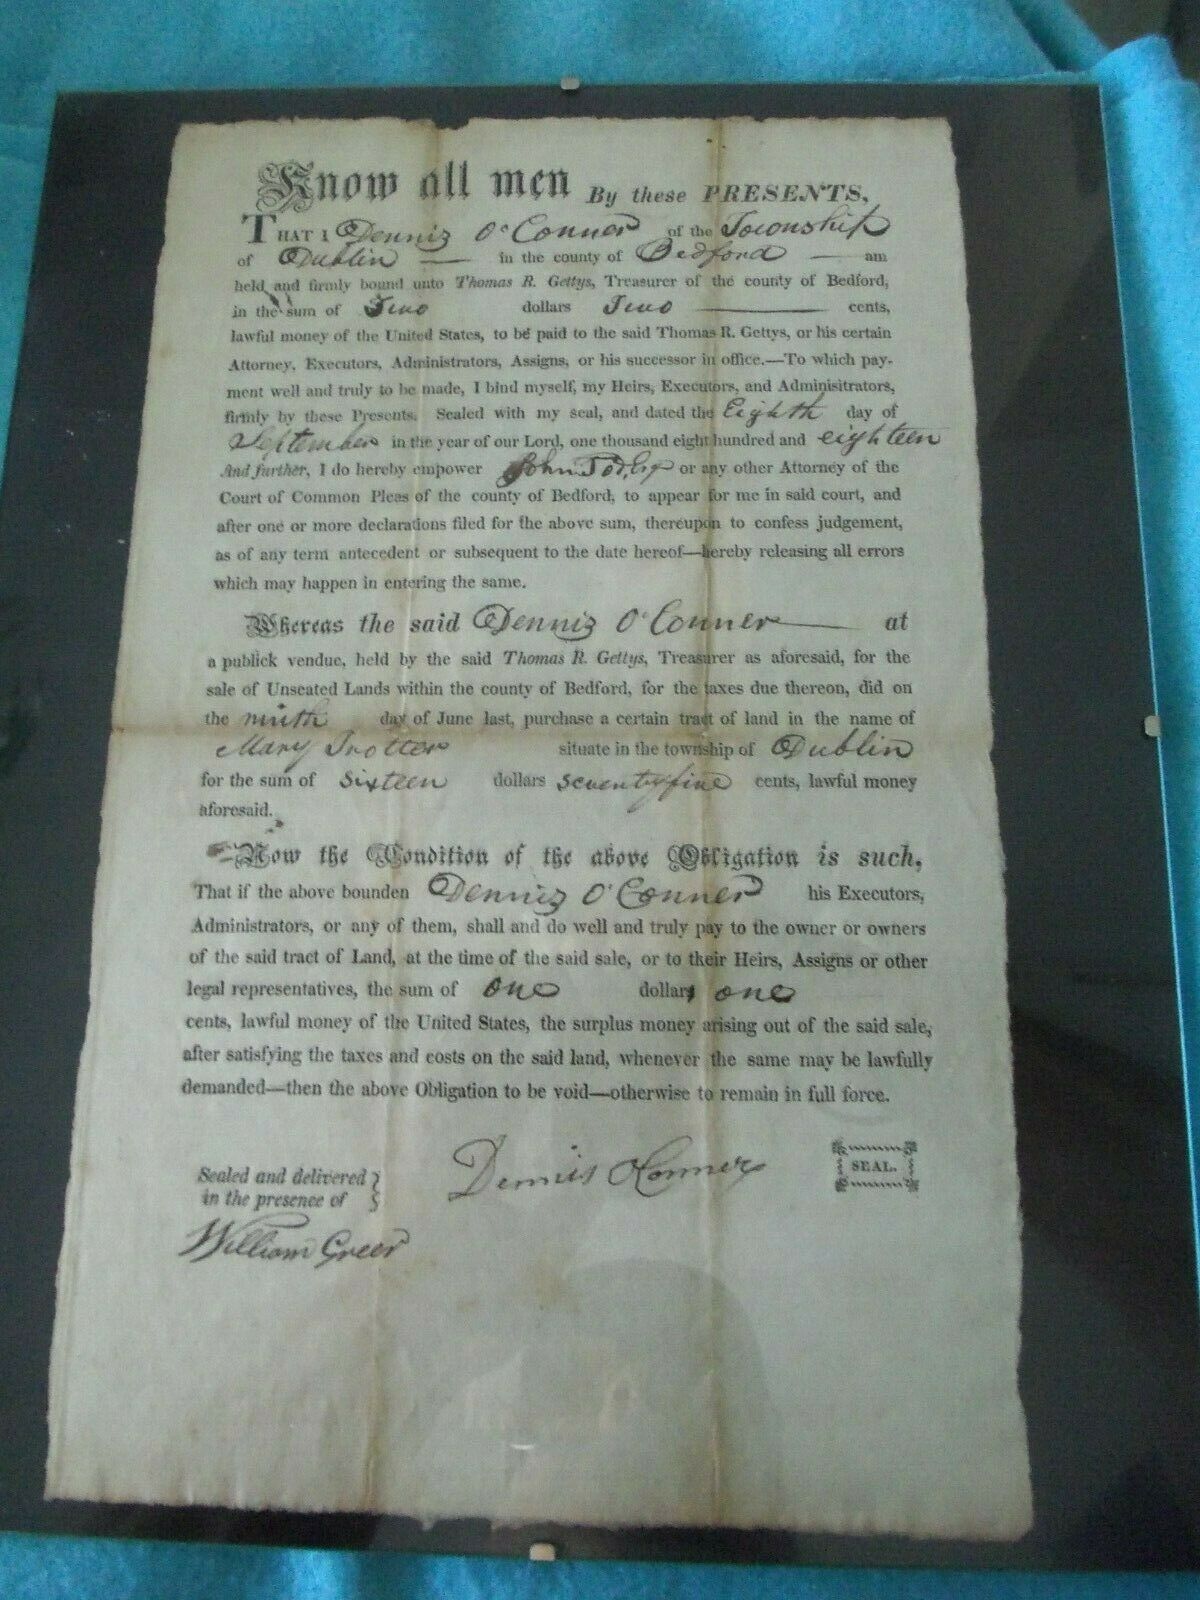 Know all men By these PRESENTS,
THAT I Denniz O'Conner of the Township
of Dublin in the county of Bedford — am
held and firmly bound unto Thomas R. Gettys, Treasurer of the county of Bedford,
in the sum of Two dollars Two cents,
lawful money of the United States, to be paid to the said Thomas R. Gettys, or his certain
Attorney, Executors, Administrators, Assigns, or his successor in office.—To which pay-
ment well and truly to be made, I bind myself, my Heirs, Executors, and Adminisitrators,
firmly by these Presents. Sealed with my seal, and dated the Eighth day of
September in the year of our Lord, one thousand eight hundred and eighteen
And further, I do hereby empower John Tod, Esq or any other Attorney of the
Court of Common Pleas of the county of Bedford, to appear for me in said court, and
after one or more declarations filed for the above sum, thereupon to confess judgement,
as of any term antecedent or subsequent to the date hereof—hereby releasing all errors
which may happen in entering the same.
Whereas the said Denniz O'Conner at
a publick vendue, held by the said Thomas R. Gettys, Treasurer as aforesaid, for the
sale of Unseated Lands within the county of Bedford, for the taxes due thereon, did on
the ninth day of June last, purchase a certain tract of land in the name of
Mary Trotter situate in the township of Dublin
for the sum of sixteen dollars seventy five cents, lawful money
aforesaid.
Now the Condition of the above Obligation is such,
That if the above bounden Denniz O'Conner his Executors,
Administrators, or any of them, shall and do well and truly pay to the owner or owners
of the said tract of Land, at the time of the said sale, or to their Heirs, Assigns or other
legal representatives, the sum of one dollar one
cents, lawful money of the United States, the surplus money arising out of the said sale,
after satisfying the taxes and costs on the said land, whenever the same may be lawfully
demanded—then the above Obligation to be void—otherwise to remain in full force.
Dennis OConner SEAL.
Sealed and delivered
in the presence of
William Greer